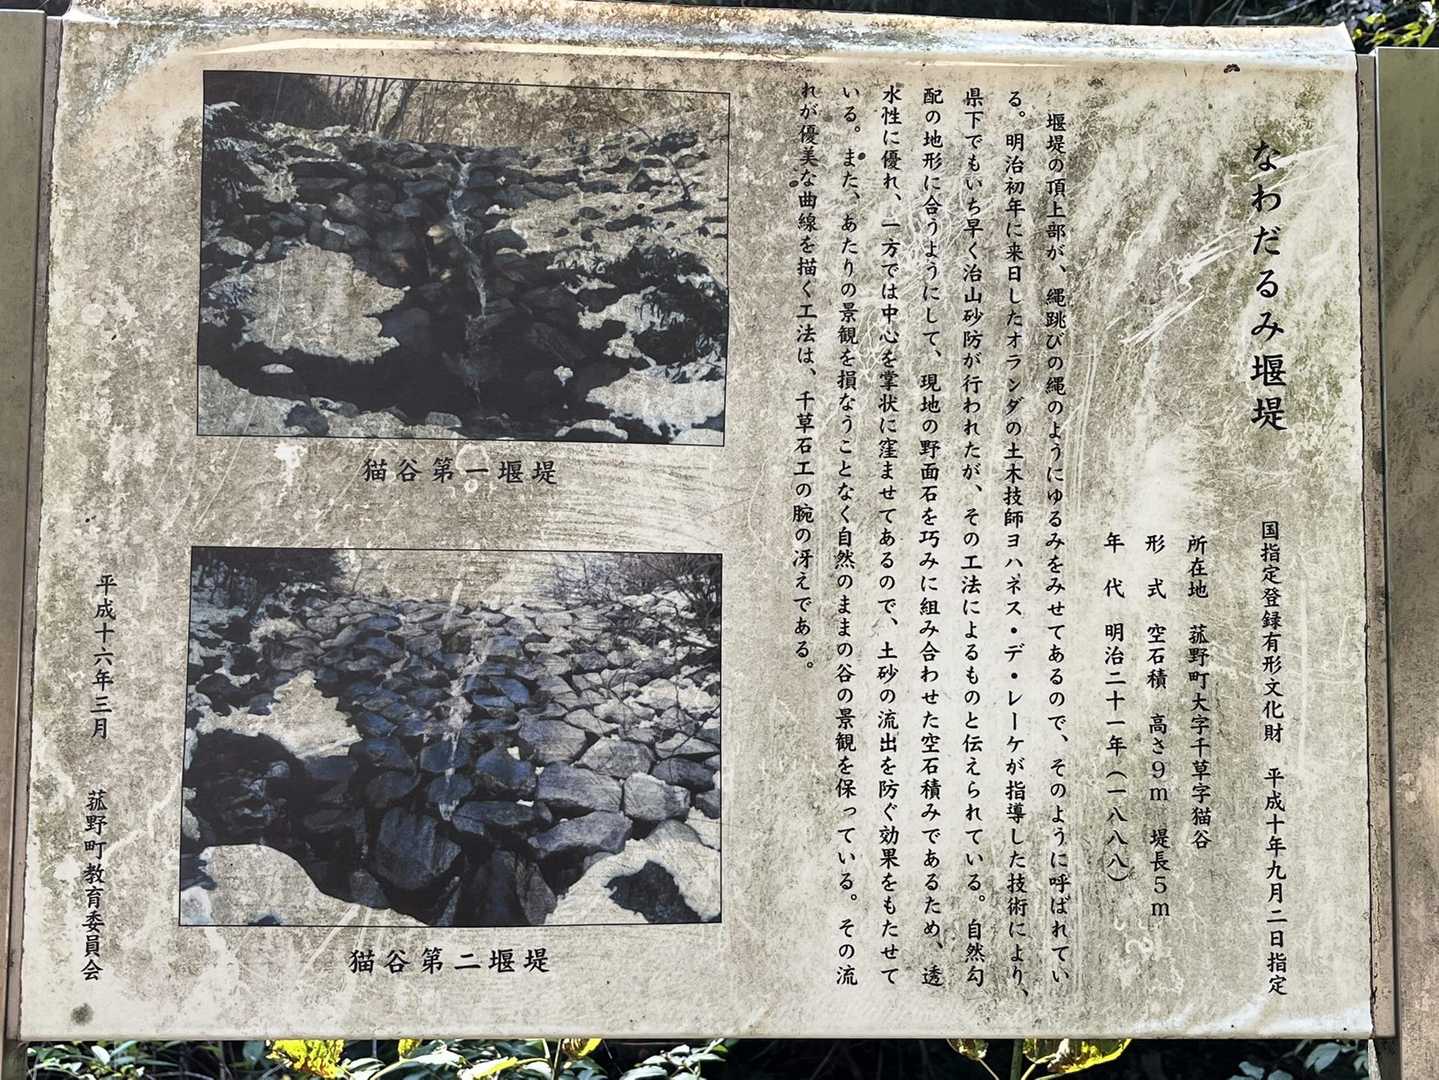 なわだるみ堰堤
国指定登録有形文化財　平成十年九月二日指定
所在地　菰野町大字千草字猫谷
形　式　空石積　高さ9m　堤長5m
年　代　明治二十一年(一八八八)
堰堤の頂上部が、縄跳びの縄のようにゆるみをみせてあるので、そのように呼ばれてい
る。明治初年に来日したオランダの土木技師ヨハネス・デ・レーケが指導した技術により、
県下でもいち早く治山砂防が行われたが、その工法によるものと伝えられている。自然勾
配の地形に合うようにして、現地の野面石を巧みに組み合わせた空石積みであるため、透
水性に優れ、一方では中心を掌状に窪ませてあるので、土砂の流出を防ぐ効果をもたせて
いる。また、あたりの景観を損なうことなく自然のままの谷の景観を保っている。その流
れが優美な曲線を描く工法は、千草石工の腕の冴えである。
猫谷第一堰堤
猫谷第二堰堤
平成十六年三月　菰野町教育委員会